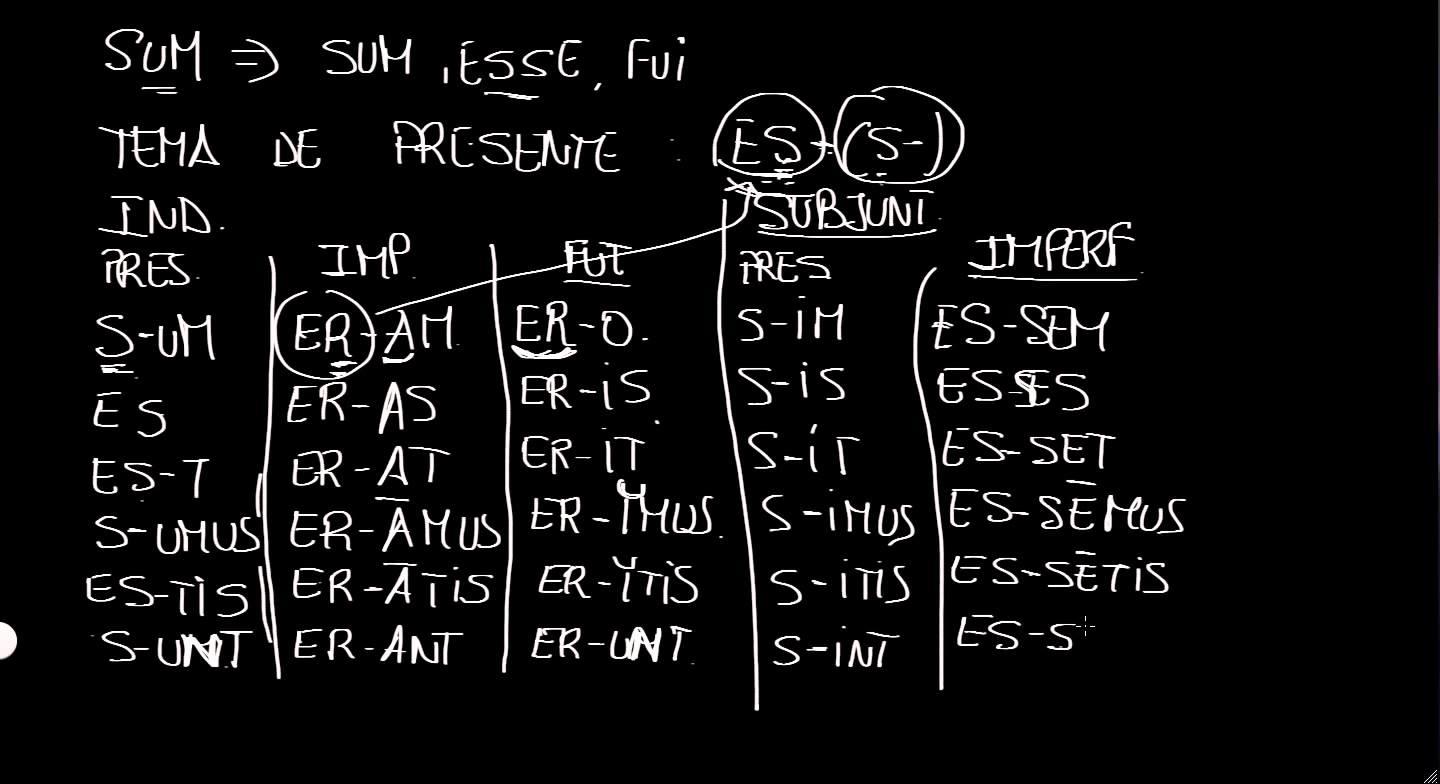 SUM ⇒ SUM, ESSE, Fui
TEMA DE PRESENTE : ES-(S-)
IND. SUBJUNT.
PRES. IMP. FUT PRES IMPERF
S-UM ER-AM ER-O. S-iM ES-SEM
ES ER-AS ER-iS S-iS ES-SES
ES-T ER-AT ER-iT S-iT ES-SET
S-UMUS ER-ĀMUS ER-ĬMUS. S-iMUS ES-SĒMUS
ES-TiS ER-ĀTiS ER-ĬTiS S-iTiS ES-SĒTiS
S-UNT ER-ANT ER-UNT. S-iNT ES-S